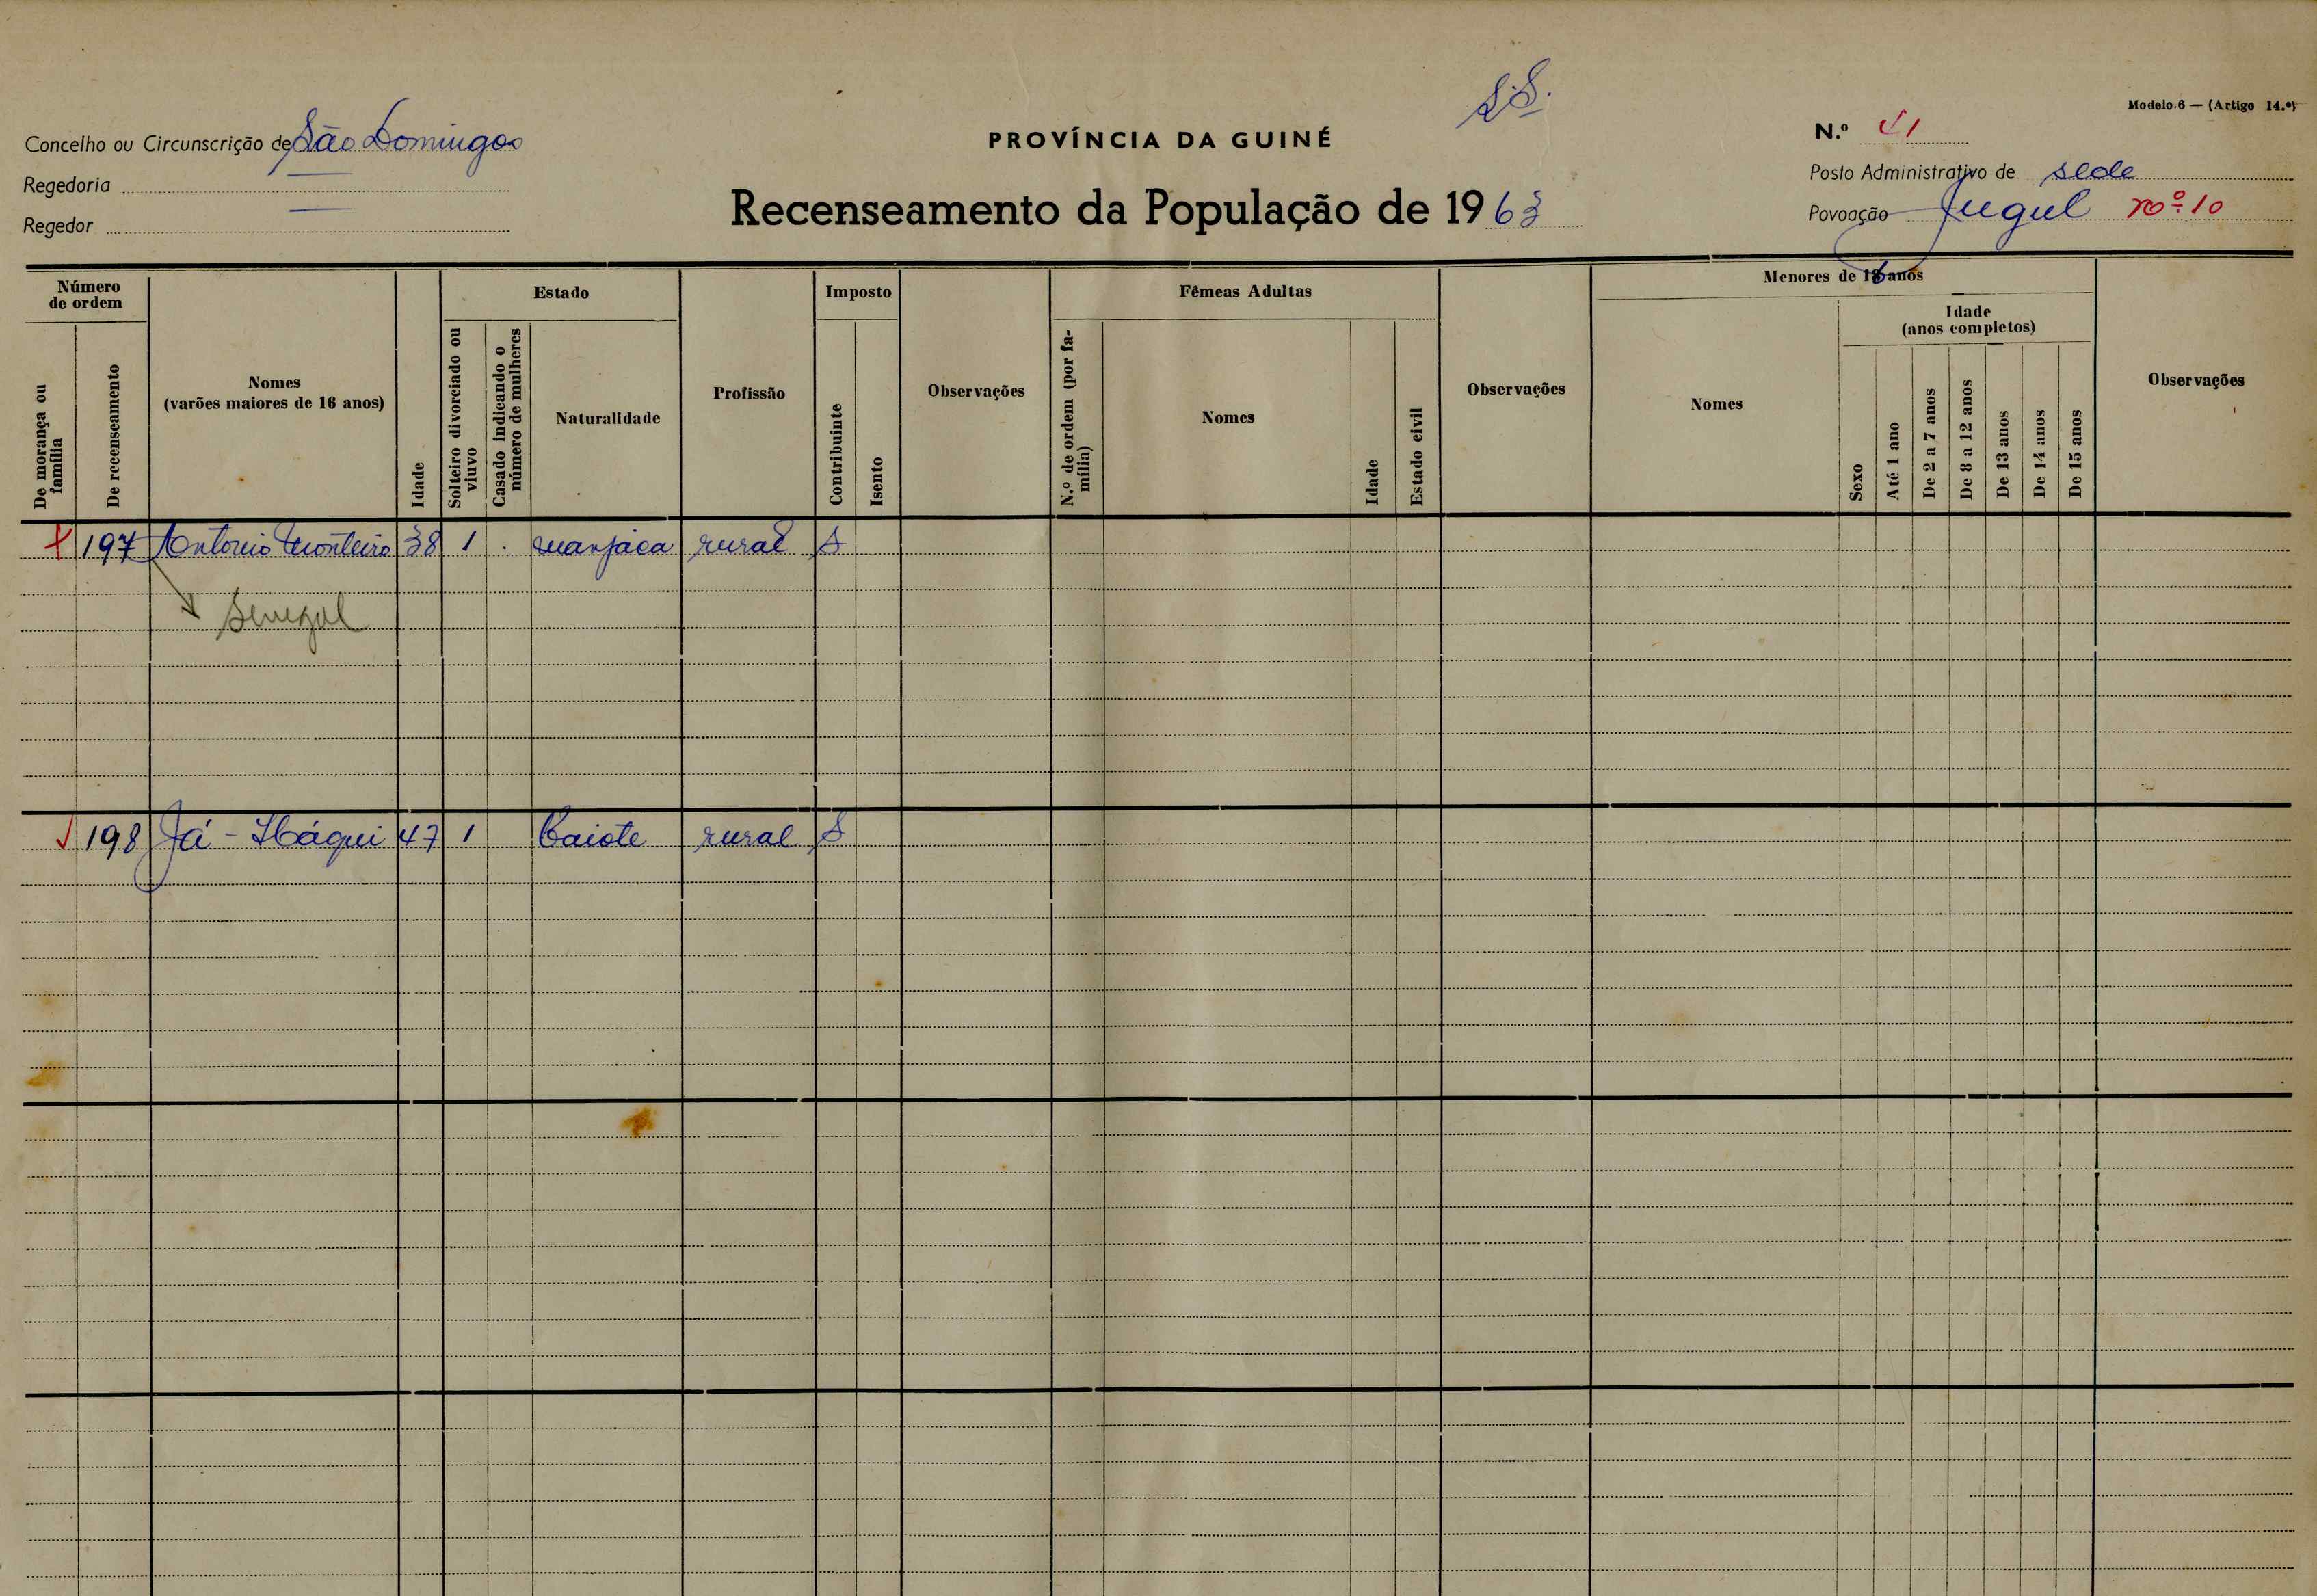 S.S.
Modelo 6 — (Artigo 14.º)
Concelho ou Circunscrição de São Domingos
PROVÍNCIA DA GUINÉ
N.º 41
Regedoria —
Posto Administrativo de sede
Regedor —
Recenseamento da População de 1963
Povoação Jugul nº 10
Número de ordem
De morança ou família
De recenseamento
Nomes
(varões maiores de 16 anos)
Idade
Estado
Solteiro divorciado ou viuvo
Casado indicando o número de mulheres
Naturalidade
Profissão
Imposto
Contribuinte
Isento
Observações
Fêmeas Adultas
N.º de ordem (por família)
Nomes
Idade
Estado civil
Observações
Menores de 16 anos
Nomes
Sexo
Idade
(anos completos)
Até 1 ano
De 2 a 7 anos
De 8 a 12 anos
De 13 anos
De 14 anos
De 15 anos
Observações
197 Antonio Monteiro 38 1 . manjaca rural S
Senegal
198 Já - Háqui 47 1 Caiote rural S